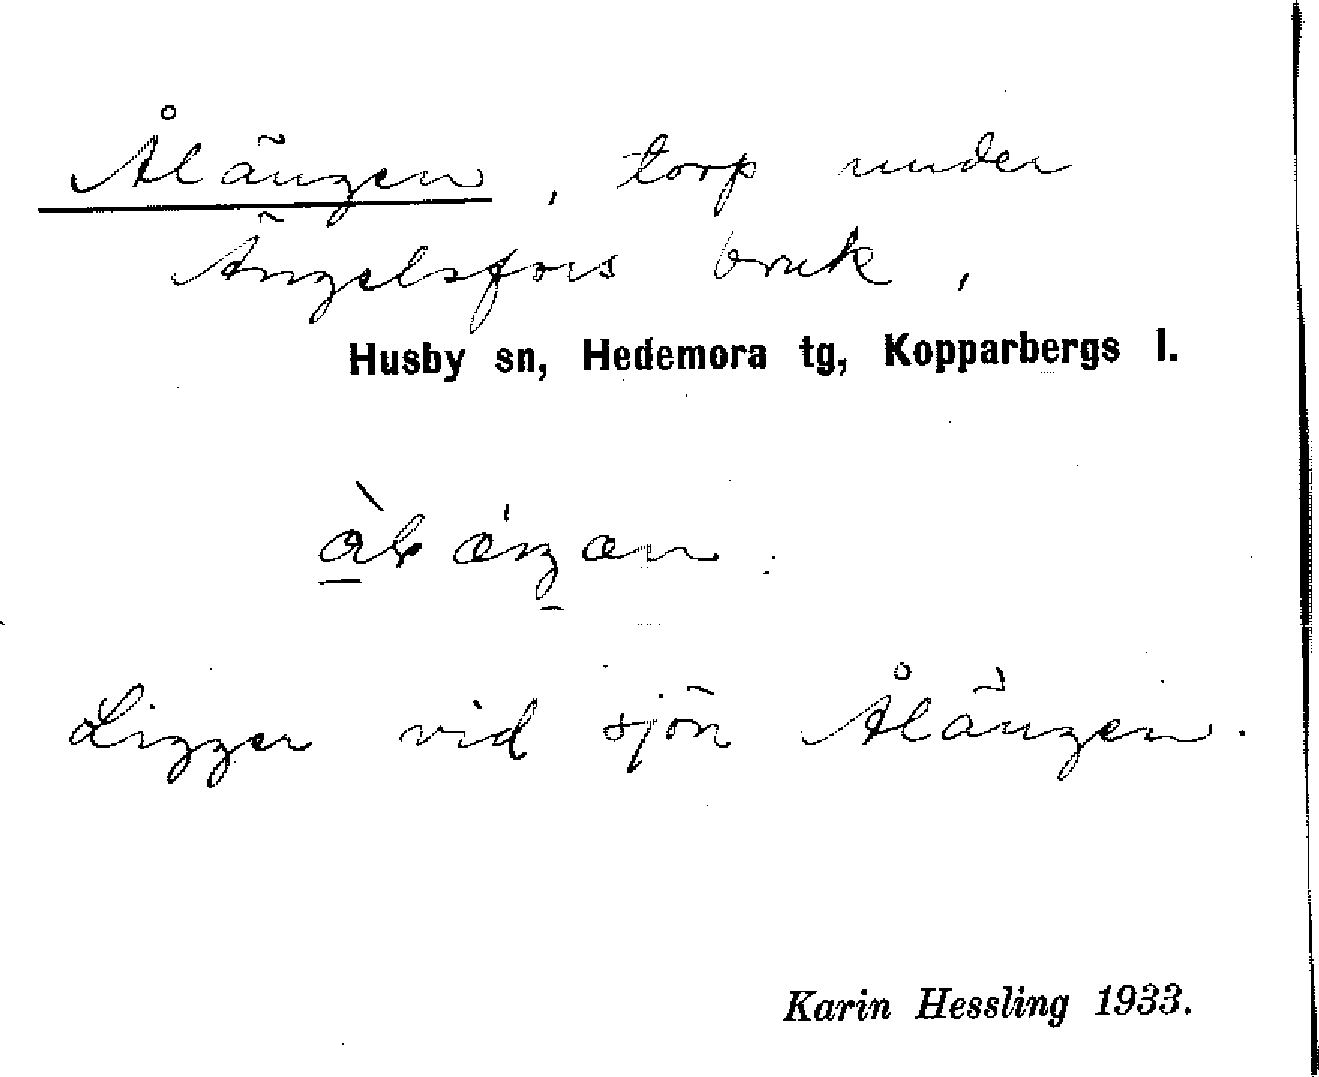 Ålängen, torp under
Ängelsfors bruk,
Husby sn, Hedemora tg, Kopparbergs l.
Ligger vid sjön Ålängen.
Karin Hessling 1933.